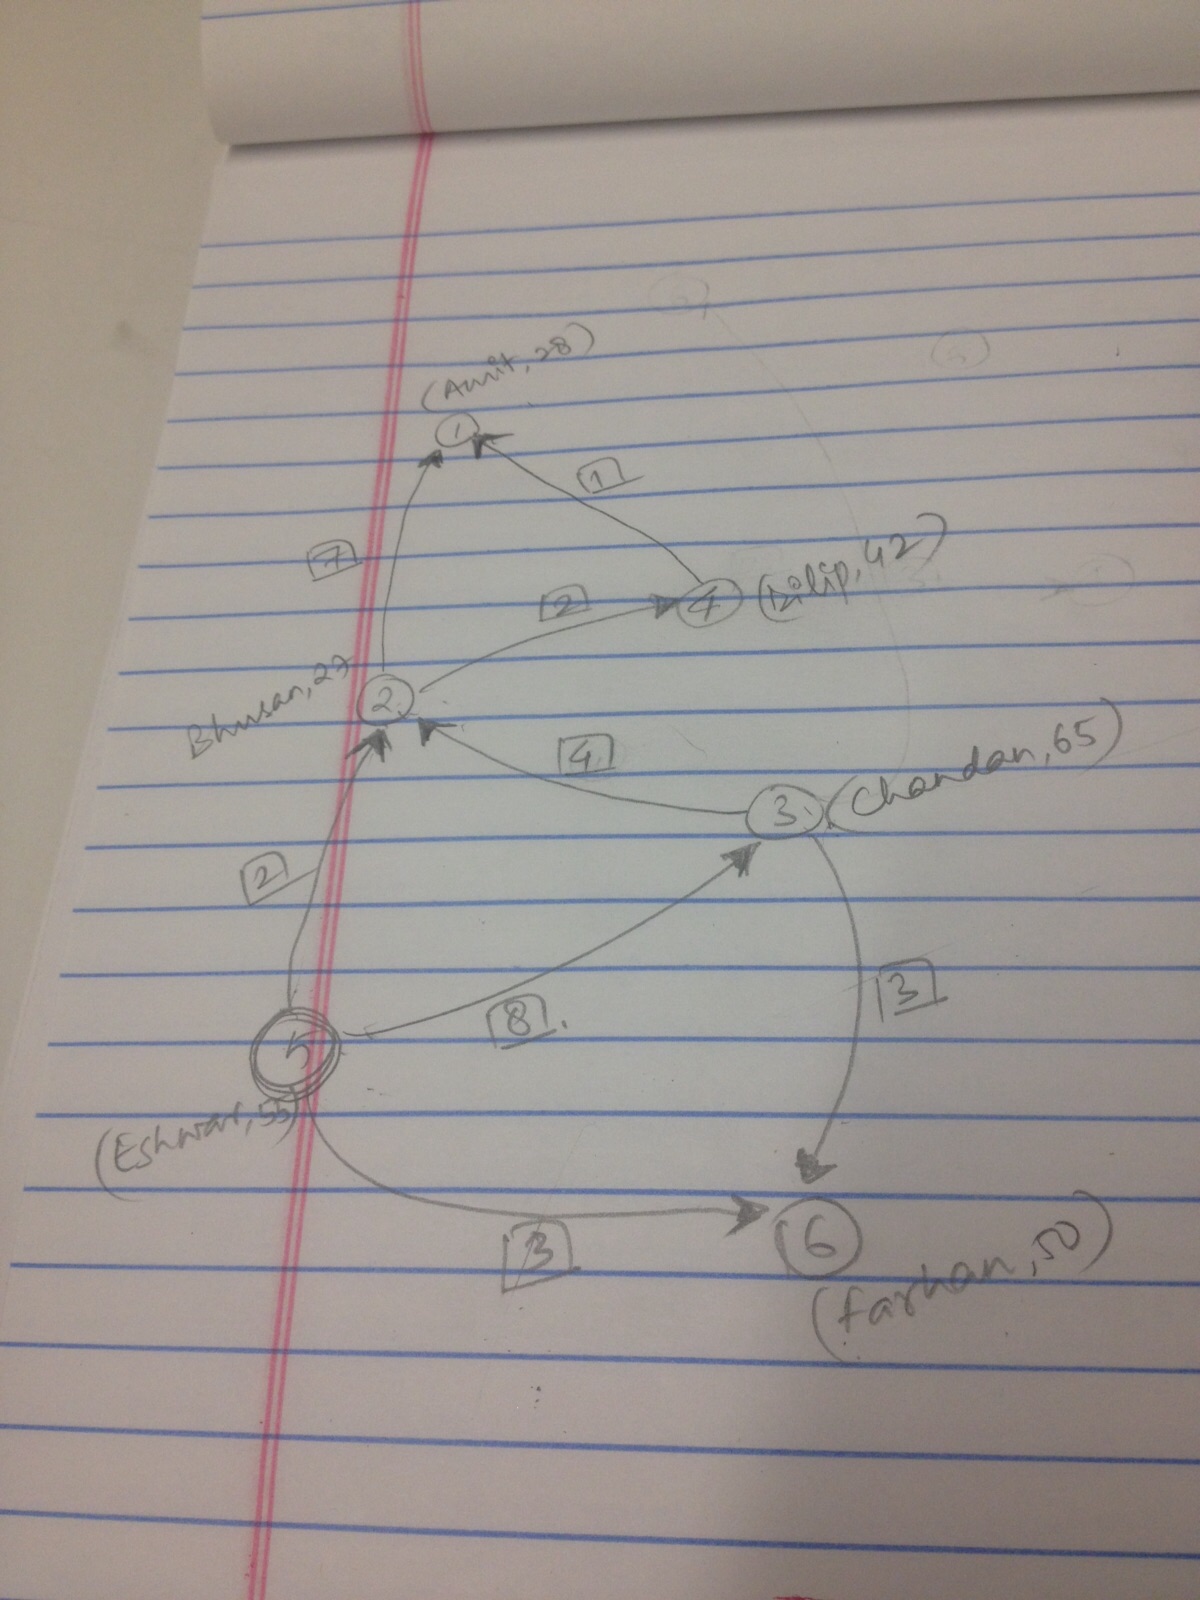 (Amit, 28)
1
1
7
2
4
(Dilip, 42)
Bhusan, 27
2
4
3
(Chandan, 65)
2
8.
3
5
(Eshwar, 55)
3
6
(farhan, 50)